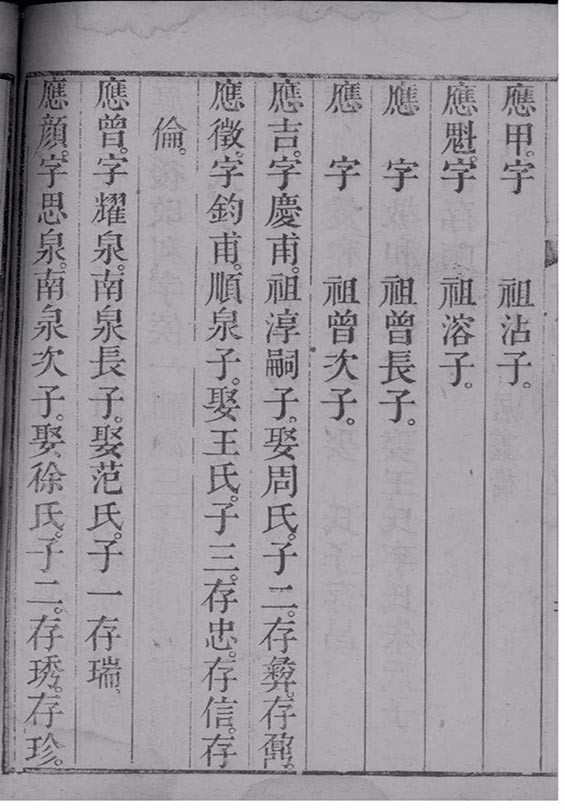 應甲。字　　祖沾子。
應魁。字　　祖溶子。
應　字　　祖曾長子。
應　字　　祖曾次子。
應吉。字慶甫。祖淳嗣子。娶周氏。子二。存彝。存鼐。
應徵。字鈞甫。順泉子。娶王氏。子三。存忠。存信。存
倫。
應曾。字耀泉。南泉長子。娶范氏。子一存瑞。
應顔。字思泉。南泉次子。娶徐氏。子二。存琇。存珍。